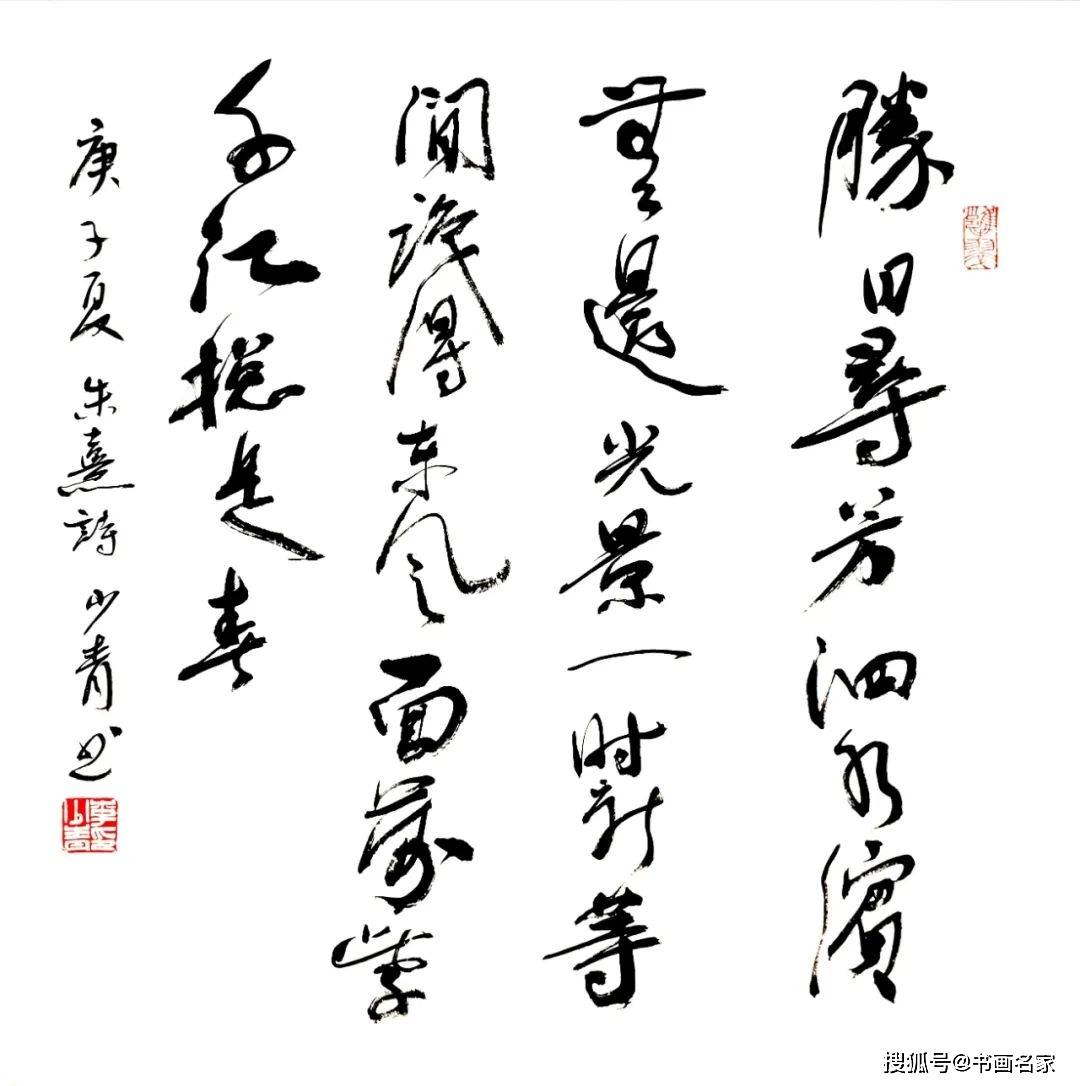 勝日尋芳泗水濱
無邊光景一时新等
閒識得东风面萬紫
千红總是春
庚子夏 朱熹詩 山青书
搜狐号@书画名家